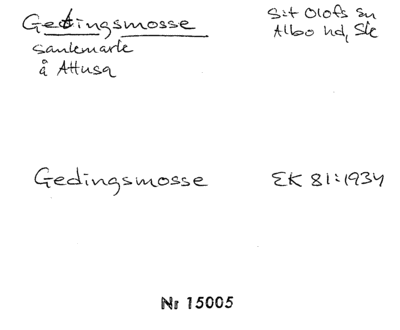 Gedingsmosse
S:t Olofs sn
Albo hd, Sk
sankmark
å Attusa
Gedingsmosse
EK 81:1934
Nr 15005